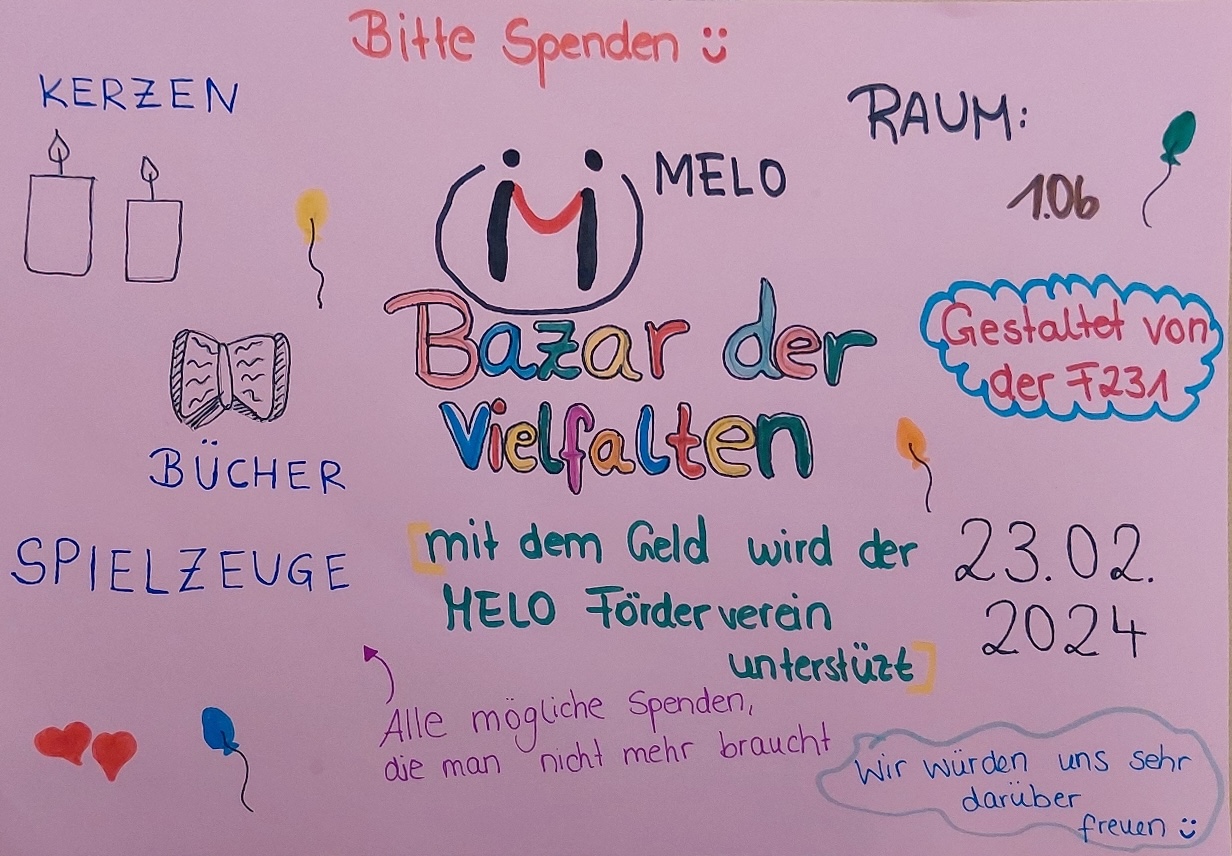 Bitte Spenden ü
KERZEN
RAUM:
1.06
MELO
Bazar der
Vielfalten
Gestaltet von
der F231
BÜCHER
SPIELZEUGE
[mit dem Geld wird der
MELO Förderverein
unterstüzt]
23.02.
2024
Alle mögliche Spenden,
die man nicht mehr braucht
Wir würden uns sehr
darüber
freuen ü